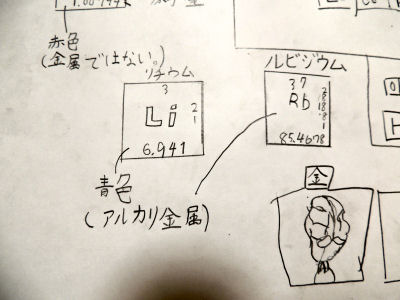 赤色
(金属ではない。)
リチウム
3
Li
2
1
6.941
ルビジウム
37
Rb
2
8
18
8
1
85.4678
青色
(アルカリ金属)
金